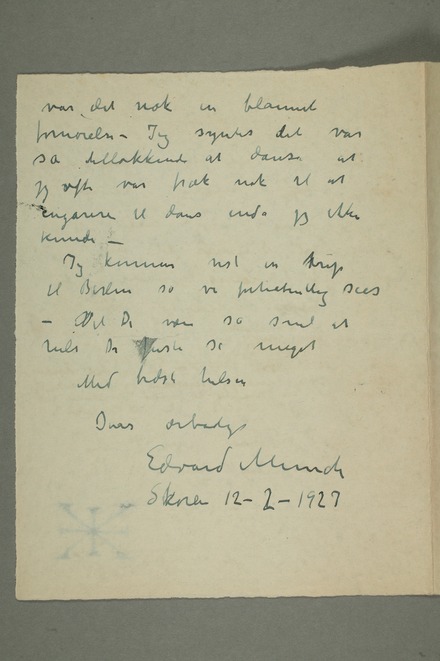 var det nok en blannet
fornøielse – Jeg syntes det var
så tillokkende at danse at
jeg ofte var fræk nok til at
engasere til dans enda jeg ikke
kunde –
Jeg kommer vist en trip
til Berlin så vi forhåbentlig sees
– Vil De være så snil at
hilse De første så meget
Med bedste hilsen
Deres ærbødige
Edvard Munch
Skøien 12–2–1927